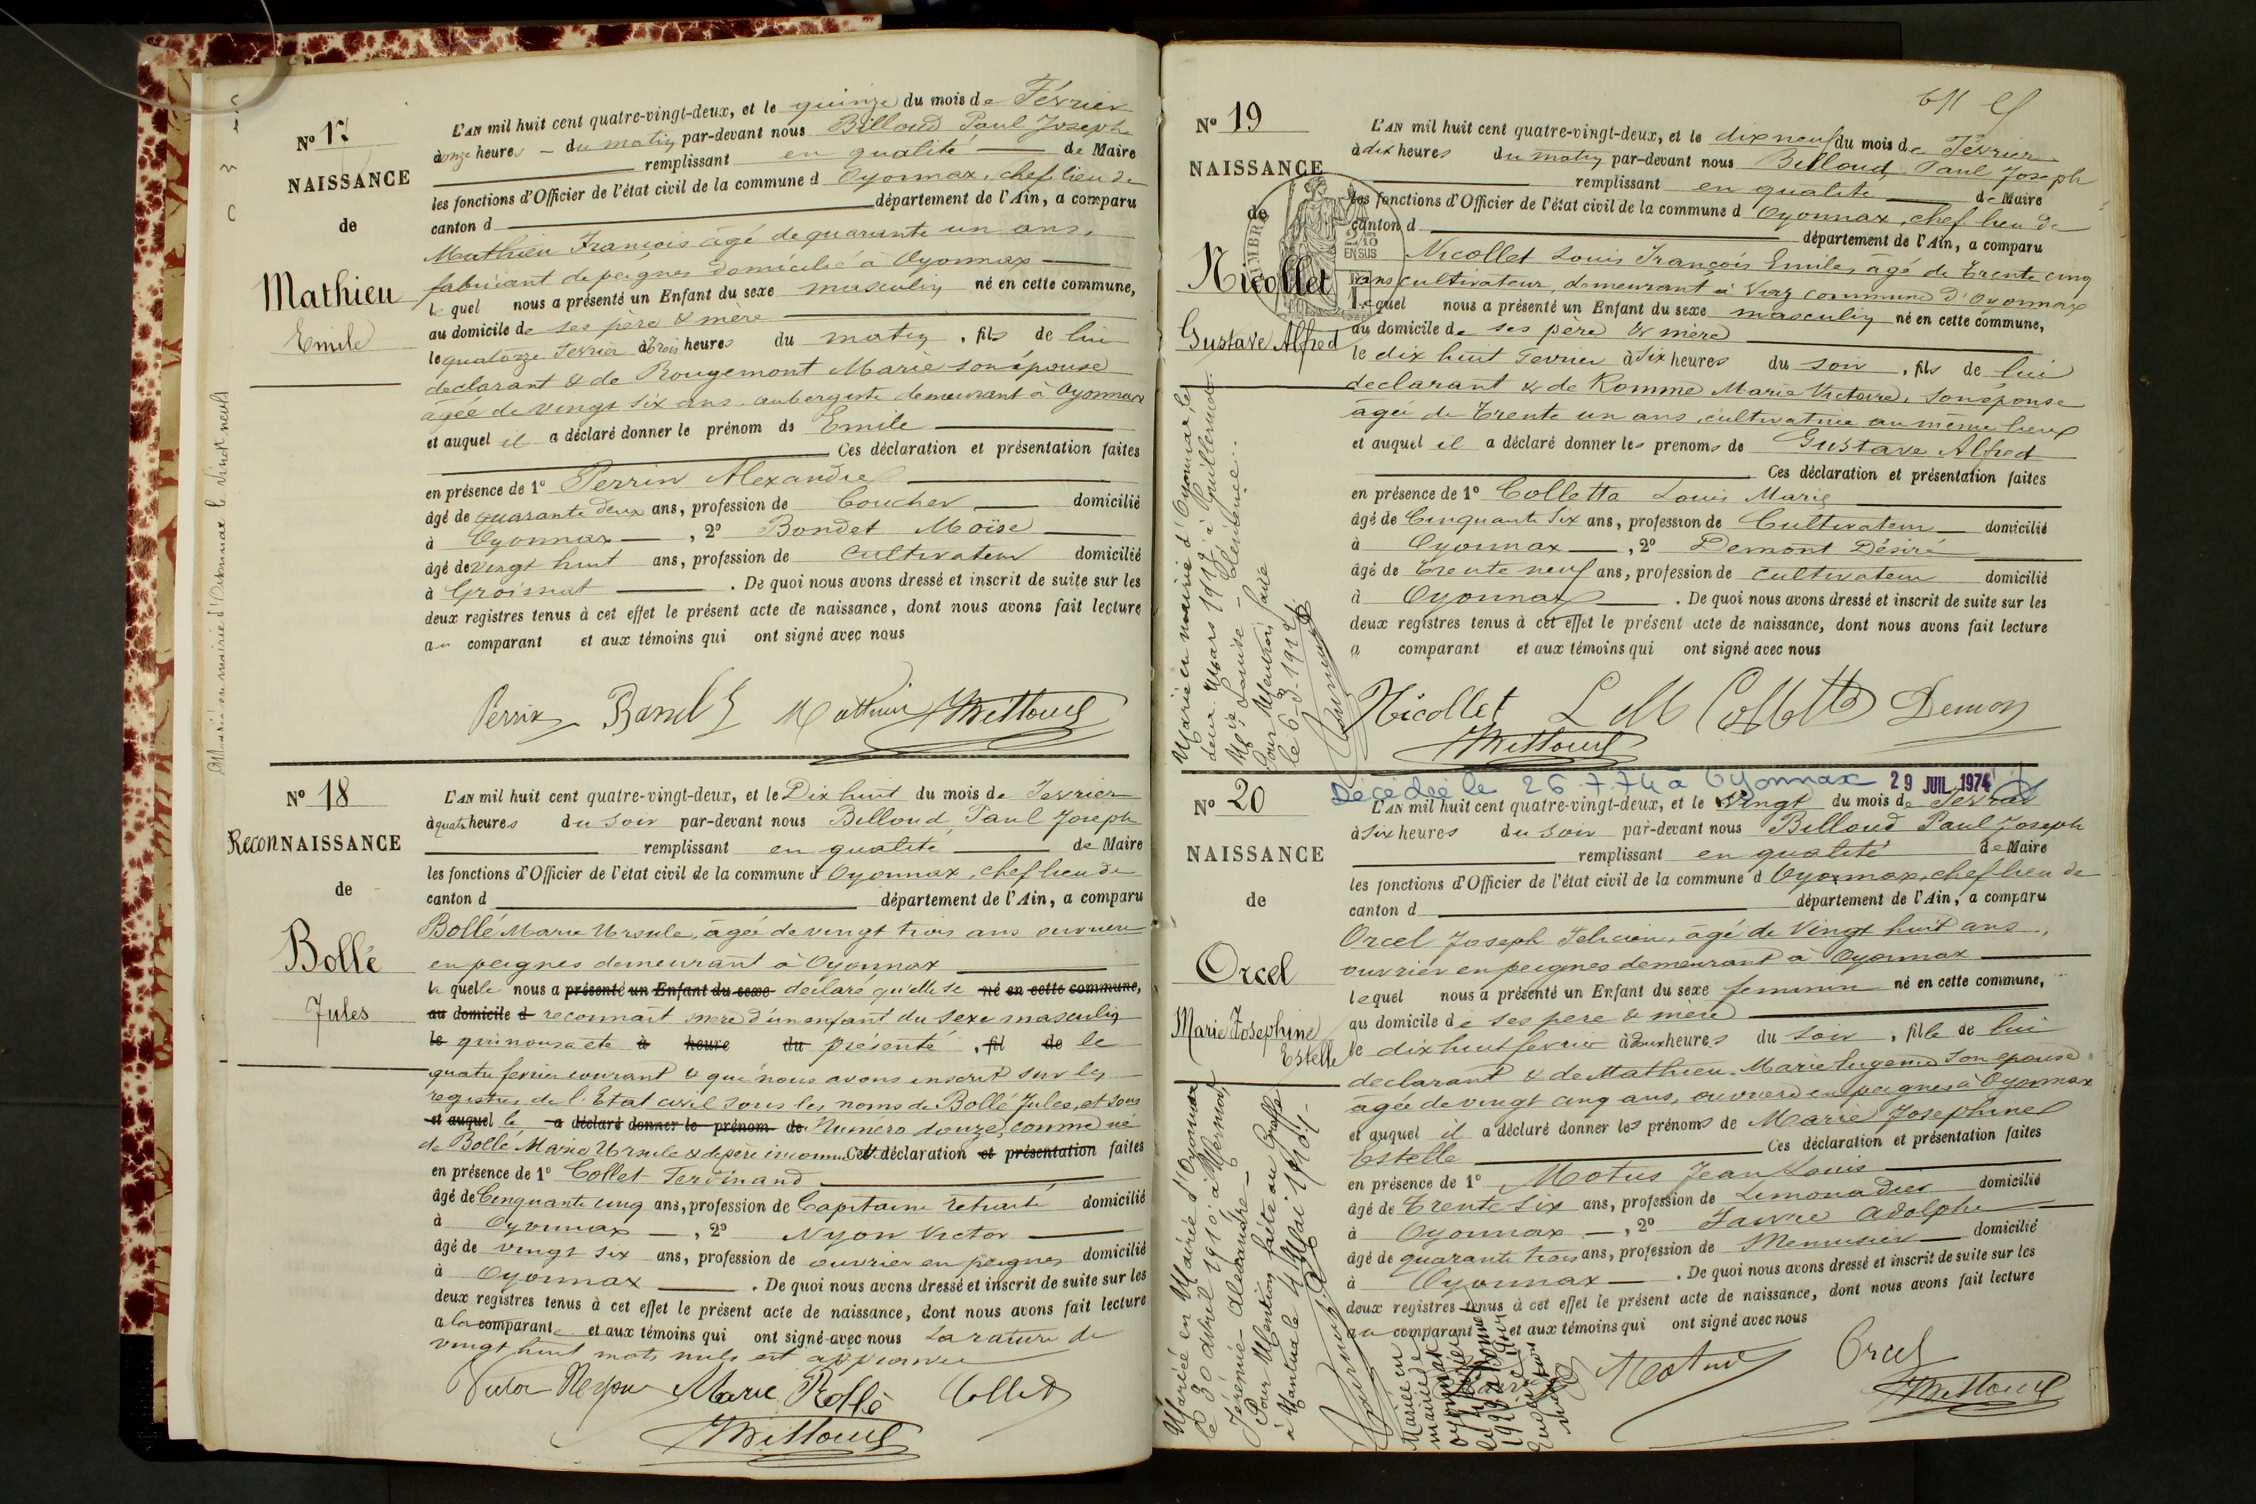 No 17
NAISSANCE
de
Mathieu
Emile
L'AN mil huit cent quatre-vingt-deux, et le quinze du mois de Février
à onze heures - du matin par-devant nous Billoud Paul Joseph
remplissant en qualité de Maire
les fonctions d'Officier de l'état civil de la commune d Oyonnax, chef lieu de
canton d département de l'Ain, a comparu
Mathieu François âgé de quarante un ans,
fabricant de peignes domicilié à Oyonnax
le quel nous a présenté un Enfant du sexe masculin né en cette commune,
au domicile de ses père & mère
le quatorze Fevrier à trois heures du matin, fils de lui
declarant & de Rougemont Marie son épouse
agée de vingt six ans, aubergiste demeurant à Oyonnax
et auquel il a déclaré donner le prénom de Emile
Ces déclaration et présentation faites
en présence de 1º Perrin Alexandre
âgé de quarante deux ans, profession de Boucher domicilié
à Oyonnax, 2º Bondet Moïse
âgé de vingt huit ans, profession de cultivateur domicilié
à Groissiat. De quoi nous avons dressé et inscrit de suite sur les
deux registres tenus à cet effet le présent acte de naissance, dont nous avons fait lecture
au comparant et aux témoins qui ont signé avec nous
Perrin Mathieu
Marié en mairie d'Oyonnax le vingt neuf
No 18
ReconNAISSANCE
de
Bollé
Jules
L'AN mil huit cent quatre-vingt-deux, et le Dix huit du mois de Fevrier
à quatre heures du soir par-devant nous Billoud Paul Joseph
remplissant en qualité de Maire
les fonctions d'Officier de l'état civil de la commune d Oyonnax, chef lieu de
canton d département de l'Ain, a comparu
Bollé Marie Ursule, âgée de vingt trois ans ouvriere
en peignes demeurant à Oyonnax
la quelle nous a présenté un Enfant du sexe déclaré qu'elle se né en cette commune,
au domicile d reconnait mère d'un enfant du sexe masculin
le qui nous a été à heure du présenté, fil de le
quatre fevrier courant & que nous avons inscrit sur les
registres de l'Etat civil sous les noms de Bollé Jules, et sous
et auquel le a déclaré donner le prénom de Numero douze, comme né
de Bollé Marie Ursule & de père inconnu Cette déclaration et présentation faites
en présence de 1º Collet Ferdinand
âgé de Cinquante cinq ans, profession de Capitaine retraité domicilié
à Oyonnax, 2º Nyon Victor
âgé de vingt six ans, profession de ouvrier en peignes domicilié
à Oyonnax. De quoi nous avons dressé et inscrit de suite sur les
deux registres tenus à cet effet le présent acte de naissance, dont nous avons fait lecture
a la comparante et aux témoins qui ont signé avec nous La rature de
vingt huit mots nuls est approuvée
Victor Nyon Marie Bollé Collet
No 19
NAISSANCE
de
Nicollet
Gustave Alfred
TIMBRE
2/10
EN SUS
L'AN mil huit cent quatre-vingt-deux, et le dix neuf du mois de Fevrier
à dix heures du matin par-devant nous Billoud, Paul Joseph
remplissant en qualité de Maire
les fonctions d'Officier de l'état civil de la commune d Oyonnax, chef lieu de
canton d département de l'Ain, a comparu
Nicollet Louis François Emile, âgé de trente cinq
ans cultivateur, demeurant à Viry commune d'Oyonnax
Lequel nous a présenté un Enfant du sexe masculin né en cette commune,
au domicile de ses père & mère
le dix huit Fevrier à six heures du soir, fils de lui
declarant & de Romme Marie Victoire, son épouse
âgée de Trente un ans, cultivatrice au même lieu
et auquel il a déclaré donner les prenoms de Gustave Alfred
Ces déclaration et présentation faites
en présence de 1º Colletta Louis Marie
âgé de Cinquante Six ans, profession de Cultivateur domicilié
à Oyonnax, 2º Demont Désiré
âgé de Trente neuf ans, profession de cultivateur domicilié
à Oyonnax. De quoi nous avons dressé et inscrit de suite sur les
deux registres tenus à cet effet le présent acte de naissance, dont nous avons fait lecture
a comparant et aux témoins qui ont signé avec nous
Nicollet L M Colletta Demon
Marié en mairie d'Oyonnax le
deux Mars 1912 à Guillermoz
Mie Louise - Clémence
Pour Mention faite
le 6-3-1912
Décédée le 26.7.74 à Oyonnax 29 JUIL 1974
No 20
NAISSANCE
de
Orcel
Marie Josephine
Estelle
L'AN mil huit cent quatre-vingt-deux, et le vingt du mois de Fevrier
à six heures du soir par-devant nous Billoud Paul Joseph
remplissant en qualité de Maire
les fonctions d'Officier de l'état civil de la commune d Oyonnax, chef lieu de
canton d département de l'Ain, a comparu
Orcel Joseph Felicien, âgé de Vingt huit ans,
ouvrier en peignes demeurant à Oyonnax
lequel nous a présenté un Enfant du sexe feminin né en cette commune,
au domicile de ses pere & mère
le dix huit fevrier à deux heures du soir, fille de lui
declarant & de Mathieu Marie Eugenie son epouse
âgée de vingt cinq ans, ouvriere en peignes à Oyonnax
et auquel il a déclaré donner les prénoms de Marie Josephine
Estelle Ces déclaration et présentation faites
en présence de 1º Motus Jean Louis
âgé de Trente Six ans, profession de Limonadier domicilié
à Oyonnax, 2º Faivre Adolphe
âgé de quarante trois ans, profession de Menuisier domicilié
à Oyonnax. De quoi nous avons dressé et inscrit de suite sur les
deux registres tenus à cet effet le présent acte de naissance, dont nous avons fait lecture
au comparant et aux témoins qui ont signé avec nous
Motus Orcel
Mariée en Mairie d'Oyonnax
le 30 avril 1910 à Mermoz
Jérémie - Alexandre -
Pour Mention faite au Greffe
à Nantua le 4 Mai 1910
Mariée en
mairie de
Oyonnax